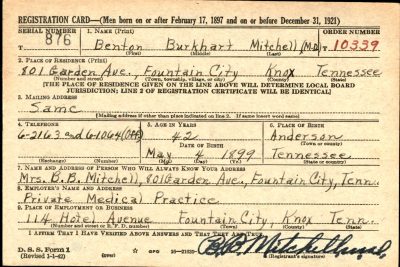 REGISTRATION CARD—(Men born on or after February 17, 1897 and on or before December 31, 1921)
SERIAL NUMBER 1. NAME (Print) ORDER NUMBER
876 Benton Burkhart Mitchell (M.D.) 10339
(First) (Middle) (Last)
2. PLACE OF RESIDENCE (Print)
801 Garden Ave., Fountain City Knox Tennessee
(Number and street) (Town, township, village, or city) (County) (State)
[THE PLACE OF RESIDENCE GIVEN ON THE LINE ABOVE WILL DETERMINE LOCAL BOARD
JURISDICTION; LINE 2 OF REGISTRATION CERTIFICATE WILL BE IDENTICAL]
3. MAILING ADDRESS
Same
[Mailing address if other than place indicated on line 2. If same insert word same]
4. TELEPHONE 5. AGE IN YEARS 6. PLACE OF BIRTH
6-2163 and 6-1064 (Off) 42 Anderson
DATE OF BIRTH (Town or county)
May 4 1899 Tennessee
(Exchange) (Number) (Mo.) (Day) (Yr.) (State or country)
7. NAME AND ADDRESS OF PERSON WHO WILL ALWAYS KNOW YOUR ADDRESS
Mrs. B.B. Mitchell, 801 Garden Ave., Fountain City, Tenn.
8. EMPLOYER'S NAME AND ADDRESS
Private Medical Practice
9. PLACE OF EMPLOYMENT OR BUSINESS
114 Hotel Avenue Fountain City, Knox Tenn.
(Number and street or R. F. D. number) (Town) (County) (State)
I AFFIRM THAT I HAVE VERIFIED ABOVE ANSWERS AND THAT THEY ARE TRUE.
D. S. S. Form 1
(Revised 1-1-42) (over)
B.B. Mitchell
(Registrant's signature)